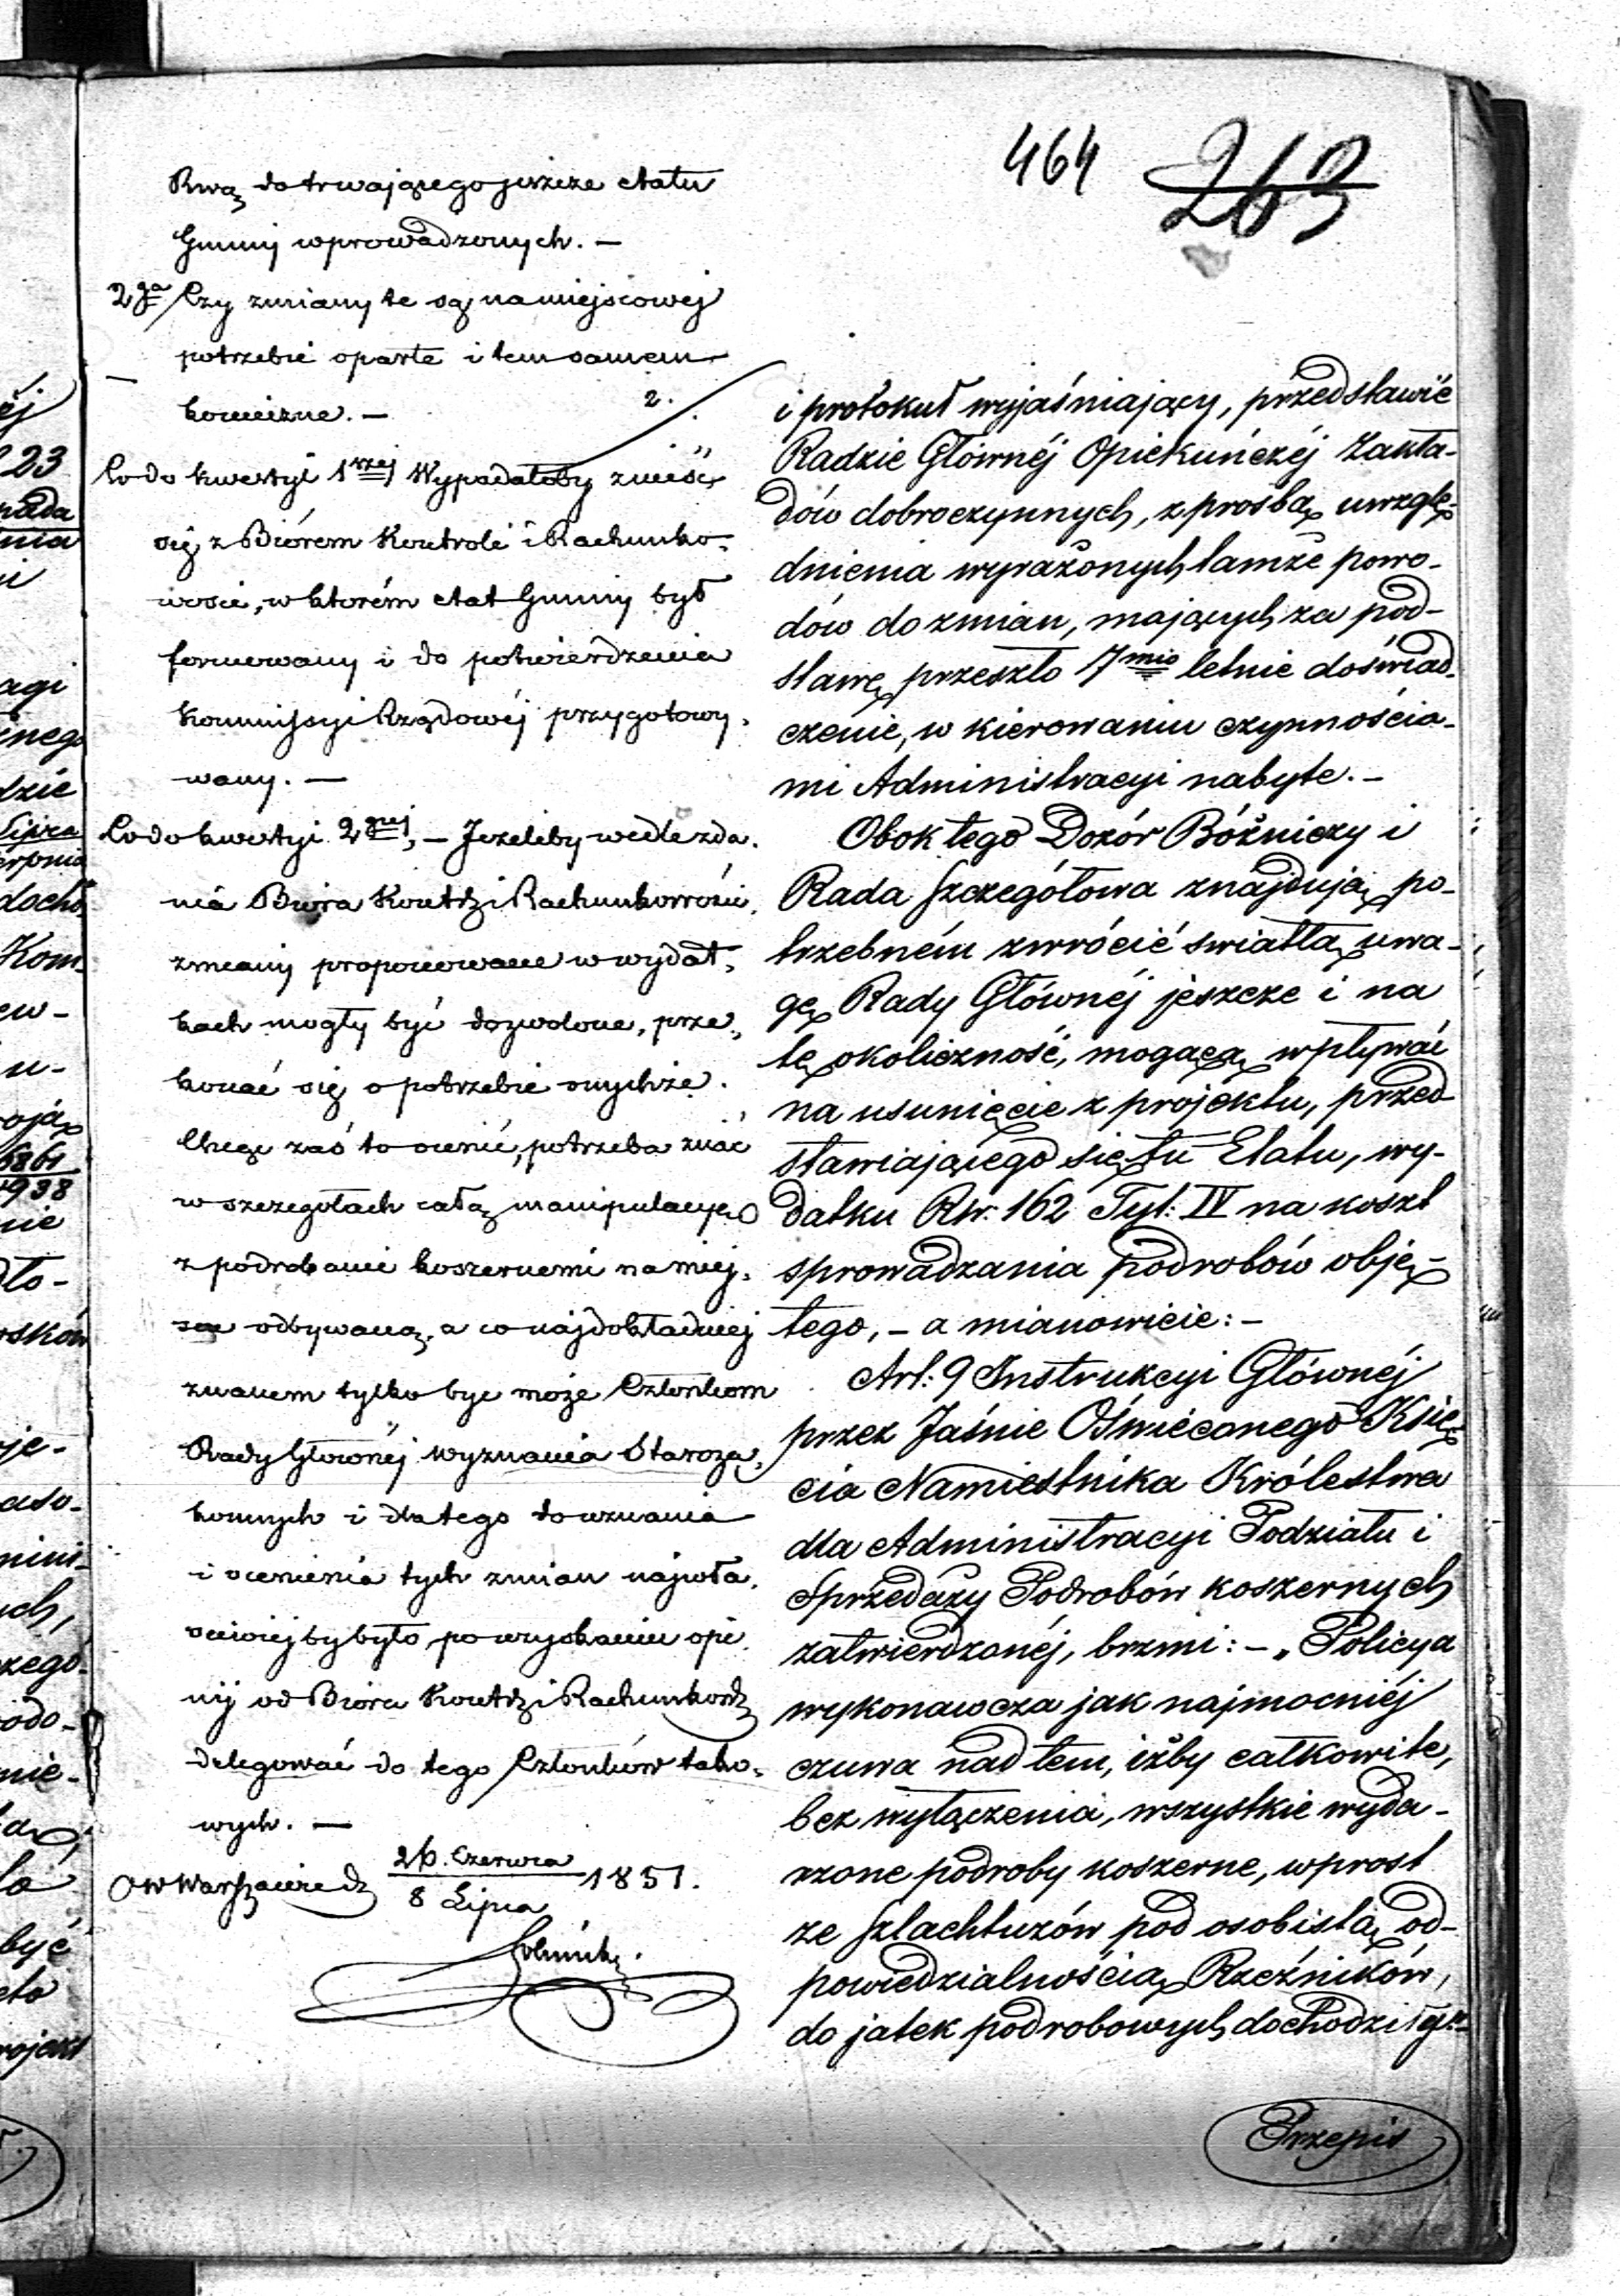 464 263
Rwą do trwającego jeszcze etatu
Gminy wprowadzonych. —
2ga Czy zmiany te są na miejscowej
potrzebie oparte i tem samem
konieczne. —
Co do kwestyi 1szej Wypadałoby znieść
się z Biórem Kontroli i Rachunko-
wości, w którém etat Gminy był
formowany i do potwierdzenia
Kommissyi Rządowéj przygotowy-
wany. —
Co do kwestyi 2giej, — Jeżeliby wedle zda-
nia Biura Kontr: i Rachunkowości,
zmiany proponowane w wydat-
kach mogły być dozwolone, prze-
konać się o potrzebie onychże.
Chcąc zaś to ocenić, potrzeba znać
w szczegółach całą manipulacyę
z podrobami koszernemi na miej-
scu odbywaną, a co najdokładniej
znanem tylko być może Członkom
Rady Głównéj wyznania Staroza-
konnych i dla tego do uznania
i ocenienia tych zmian najwła-
ściwiej by było, po uzyskaniu opi-
nij od Bióra Kontr: i Rachunkow:
delegować do tego Członków tako-
wych. —
w Warszawie d. 26. Czerwca / 8 Lipca 1851.
2.
i protokuł wyjaśniający, przedstawić
Radzie Głównéj Opiekuńczéj Zakła-
dów dobroczynnych, z prośbą uwzglę-
dnienia wyrażonych tamże powo-
dów do zmian, mających za pod-
stawę przeszło 7mio letnie doświad-
czenie, w kierowaniu czynnościa-
mi Administracyi nabyte. —
Obok tego Dozór Bóżniczy i
Rada Szczegółowa znajdują po-
trzebném zwrócić światłą uwa-
gę Rady Głównéj jeszcze i na
tę okoliczność, mogącą wpływać
na usunięcie z projektu, przed
stawiającego się tu Etatu, wy-
datku Rw. 162 Tyt: IV na koszt
sprowadzania podrobów obję-
tego, — a mianowicie: —
Art: 9 Instrukcyi Głównéj
przez Jaśnie Oświeconego Księ-
cia Namiestnika Królestwa
dla Administracyi Podziału i
Sprzedaży Podrobów koszernych
zatwierdzonéj, brzmi: — „Policya
wykonawcza jak najmocniéj
czuwa nad tem, iżby całkowite,
bez wyłączenia, wszystkie wyda-
rzone podroby koszerne, wprost
ze szlachtuzów pod osobistą od-
powiedzialnością Rzeźników,
do jatek podrobowych dochodziły"—
Przepis